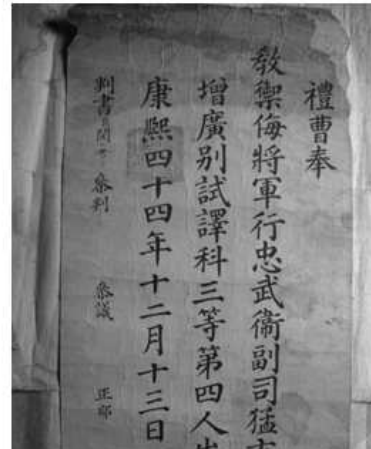 禮曹奉
敎禦侮將軍行忠武衛副司猛
增廣別試譯科三等第四人
康熙四十四年十二月十三日
判書 參判 參議 正郎